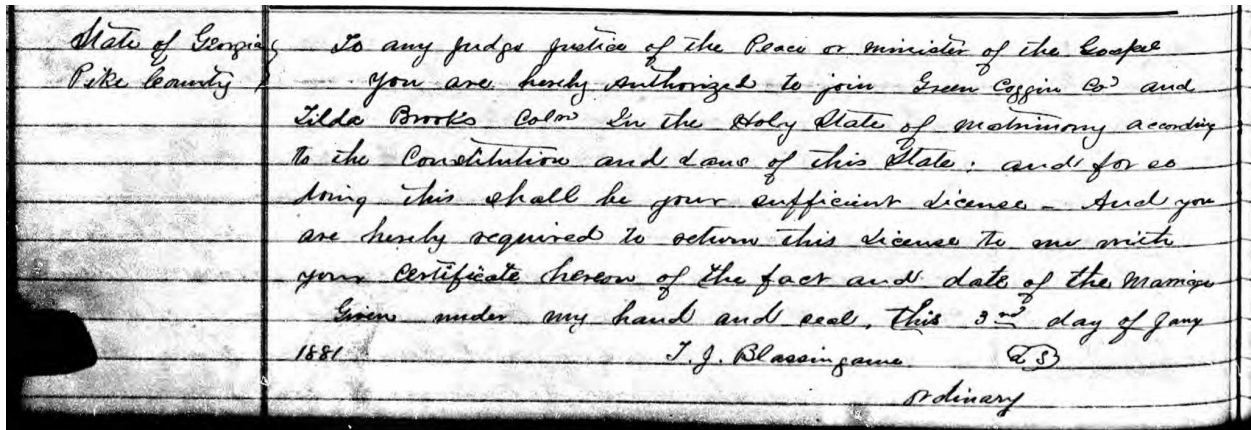 State of Georgia } To any Judge Justice of the Peace or minister of the Gospel
Pike County } You are hereby Authorized to join Green Coggin Co^d and
Tilda Brooks Col^d In the Holy State of Matrimony according
to the Constitution and Laws of this State: and for so
doing this shall be your sufficient License - And you
are hereby required to return this License to me with
your Certificate hereon of the fact and date of the Marriage
Given under my hand and seal, this 3rd day of Jany
1881 T. J. Blassingame L.S
ordinary